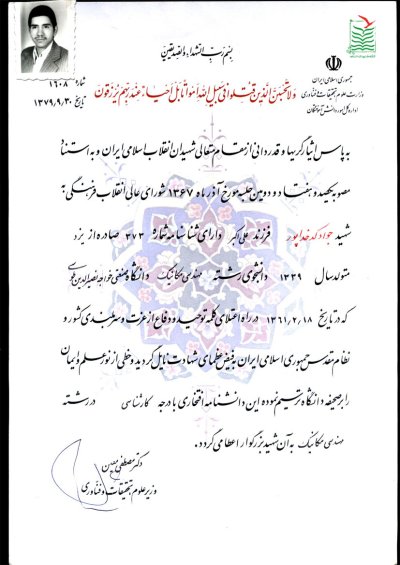 بسم رب الشهداء والصدیقین
جمهوری اسلامی ایران
وزارت علوم، تحقیقات و فناوری
اداره کل امور دانش آموختگان
شماره ۱۶۰۸
تاریخ ۱۳۷۹،۹،۳۰
ولا تحسبن الذین قتلوا فی سبیل الله امواتا بل احیاء عند ربهم یرزقون
به پاس ایثارگریها و قدردانی از مقام متعالی شهیدان انقلاب اسلامی ایران و به استناد
مصوبه یکصد و هفتاد و دومین جلسه مورخ آذر ماه ۱۳۶۷ شورای عالی انقلاب فرهنگی به
شهید جواد کدخداپور فرزند علی اکبر دارای شناسنامه شماره ۳۷۳ صادره از یزد
متولد سال ۱۳۳۹ دانشجوی رشته مهندسی مکانیک دانشگاه صنعتی خواجه نصیرالدین طوسی
که در تاریخ ۱۳۶۱،۲،۱۸ در راه اعتلای کلمه توحید و دفاع از عزت و سربلندی کشور و
نظام مقدس جمهوری اسلامی ایران به فیض عظمای شهادت نایل گردید و خطی از نور علم و ایمان
را بر صحیفه دانشگاه ترسیم نموده این دانشنامه افتخاری با درجه کارشناسی در رشته
مهندسی مکانیک به آن شهید بزرگوار اعطا می گردد.
دکتر مصطفی معین
وزیر علوم، تحقیقات و فناوری